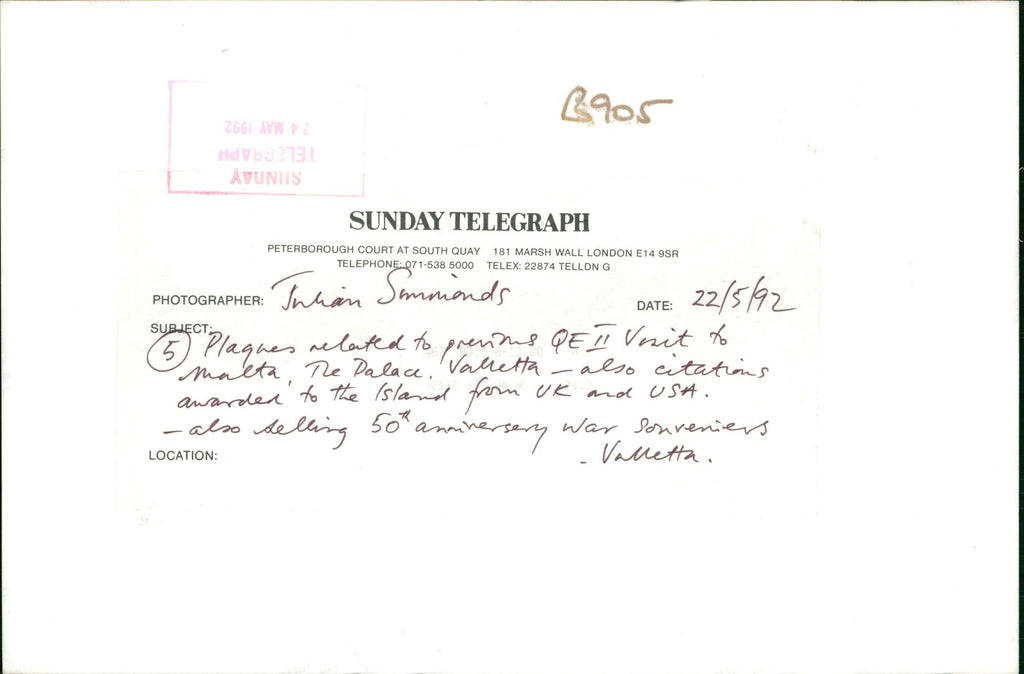 B905
SUNDAY
TELEGRAPH
24 MAY 1992
SUNDAY TELEGRAPH
PETERBOROUGH COURT AT SOUTH QUAY 181 MARSH WALL LONDON E14 9SR
TELEPHONE: 071-538 5000 TELEX: 22874 TELLDN G
PHOTOGRAPHER: Julian Simmonds DATE: 22/5/92
SUBJECT:
(5) Plaques related to previous QE II Visit to
Malta, The Palace, Valletta – also citations
awarded to the Island from UK and USA.
– also selling 50th anniversery War Souveniers
LOCATION: - Valletta.